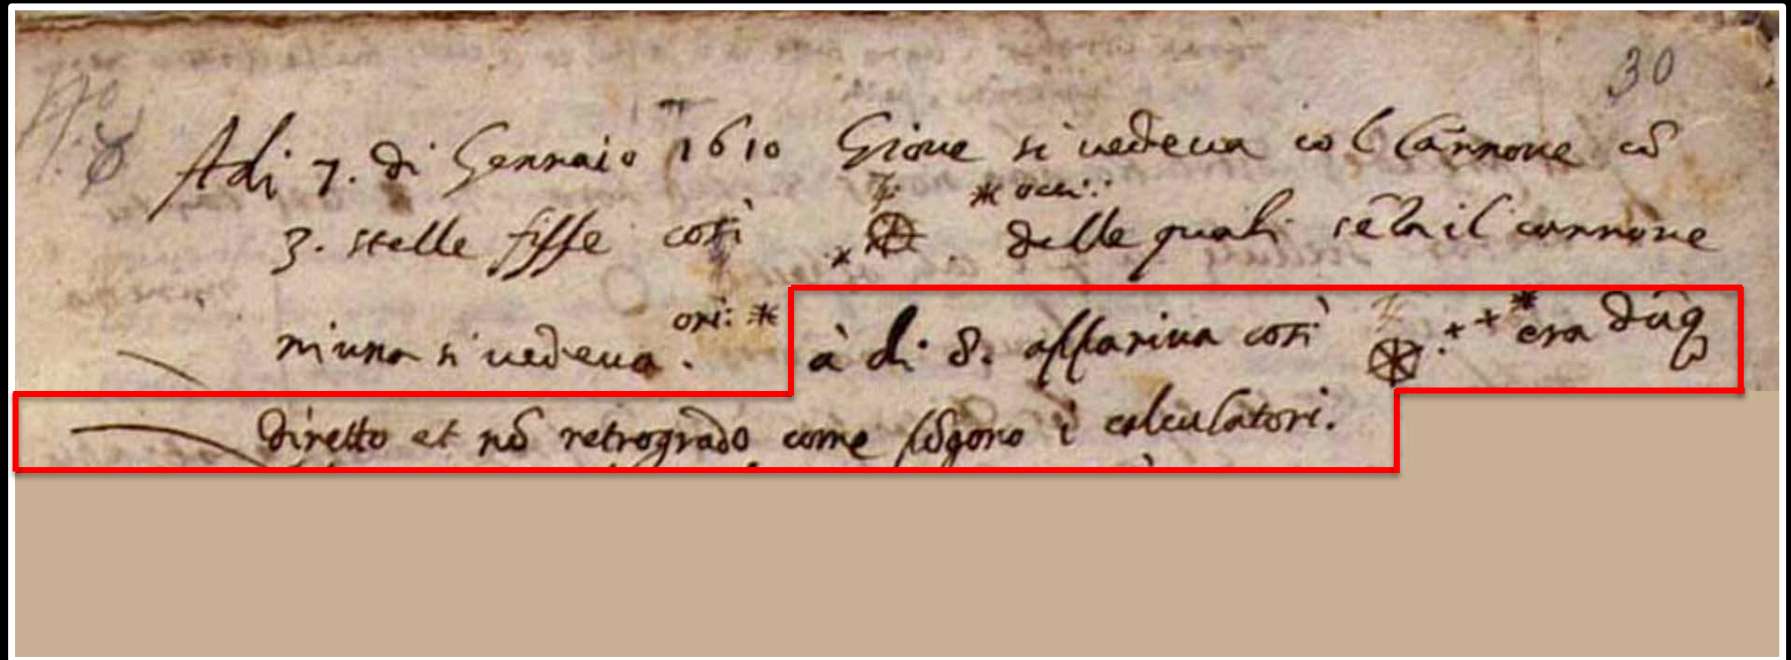 30
Adi 7. di Gennaio 1610 Gioue si uedeua col Cannone cõ
3. stelle fisse così delle quali sẽza il cannone
niuna si uedeua. à di 8. appariua così era dũq
diretto et nõ retrogrado come põgono i calculatori.